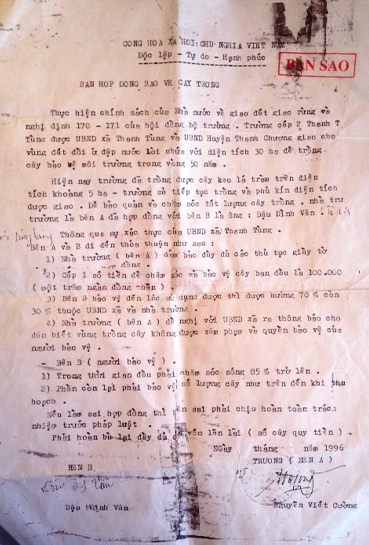 CONG HOA XA HOI CHU NGHIA VIET NAM
Độc lập - Tự do - Hạnh phúc
BẢN SAO
BAN HOP DONG BAO VE CAY TRONG
Thực hiện chính sách của Nhà nước về giao đất giao rừng và
nghị định 170 - 171 của hội đồng bộ trưởng . Trường cấp 2 Thanh T
Tùng được UBND xã Thanh Tùng và UBND Huyện Thanh Chương giao cho
vùng đất đồi ở đập nước lồi chứa với diện tích 30 ha để trồng
cây bảo vệ môi trường trong vòng 50 năm .
Hiện nay trường đã trồng được cây keo lá tràm trên diện
tích khoảng 5 ha - trường sẽ tiếp tục trồng và phủ kín diện tích
được giao . Để bảo quản và chăm sóc tốt lượng cây trồng . nhà trư
trường là bên A đã hợp đồng với bên B là ông : Đậu Đình Vân .
Thông qua sự xác thực của UBND xã Thanh Tùng .
Bên A và B đi đến thỏa thuận như sau :
1) Nhà trường ( bên A ) đảm bảo đầy đủ các thủ tục giấy tờ
2) Cấp 1 số tiền để chăm sóc và bảo vệ cây ban đầu là 100.000
( một trăm ngàn đồng chẵn )
3) Bên B bảo vệ đến lúc sử dụng được thì được hưởng 70 % còn
30 % thuộc UBND xã và nhà trường .
4) Nhà trường ( bên A ) đề nghị với UBND xã ra thông báo cho
dân biết vùng trồng cây không được xâm phạm về quyền bảo vệ của
người bảo vệ .
- Bên B ( người bảo vệ ) .
1) Trong thời gian đầu phải chăm sóc sống 85 % trở lên .
2) Phần còn lại phải bảo vệ số lượng cây như trên đến khi thu
hoạch .
Nếu làm sai hợp đồng thì bên sai phải chịu hoàn toàn trách
nhiệm trước pháp luật .
Phải hoàn bù lại đầy đủ cả vốn lẫn lãi ( số cây quy tiền ) .
Ngày tháng năm 1996
BEN B
TRUONG ( BEN A )
Đậu Đình Vân
Nguyễn Viết Cường